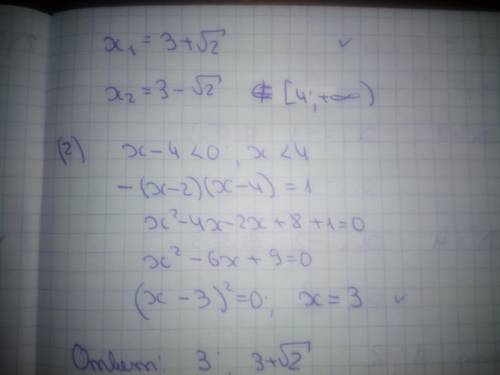 x₁ = 3+√2 ✓
x₂ = 3-√2 ∉ [4; +∞)
(2) x-4<0; x<4
-(x-2)(x-4) = 1
x²-4x-2x+8+1=0
x²-6x+9=0
(x-3)²=0; x=3 ✓
Ответ: 3; 3+√2